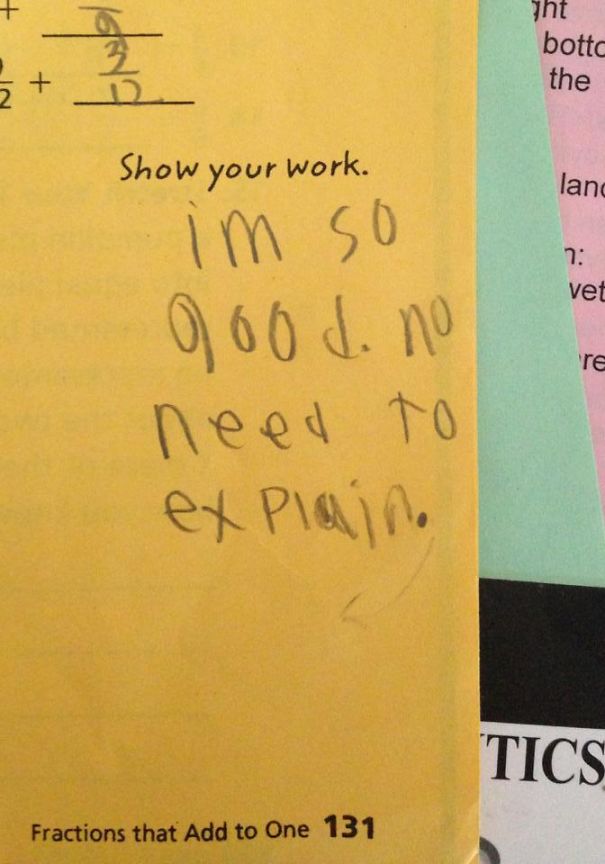 + 9
2 + 3
12
Show your work.
im so
good. no
need to
explain.
Fractions that Add to One 131
ght
botto
the
land
n:
wet
re
TICS